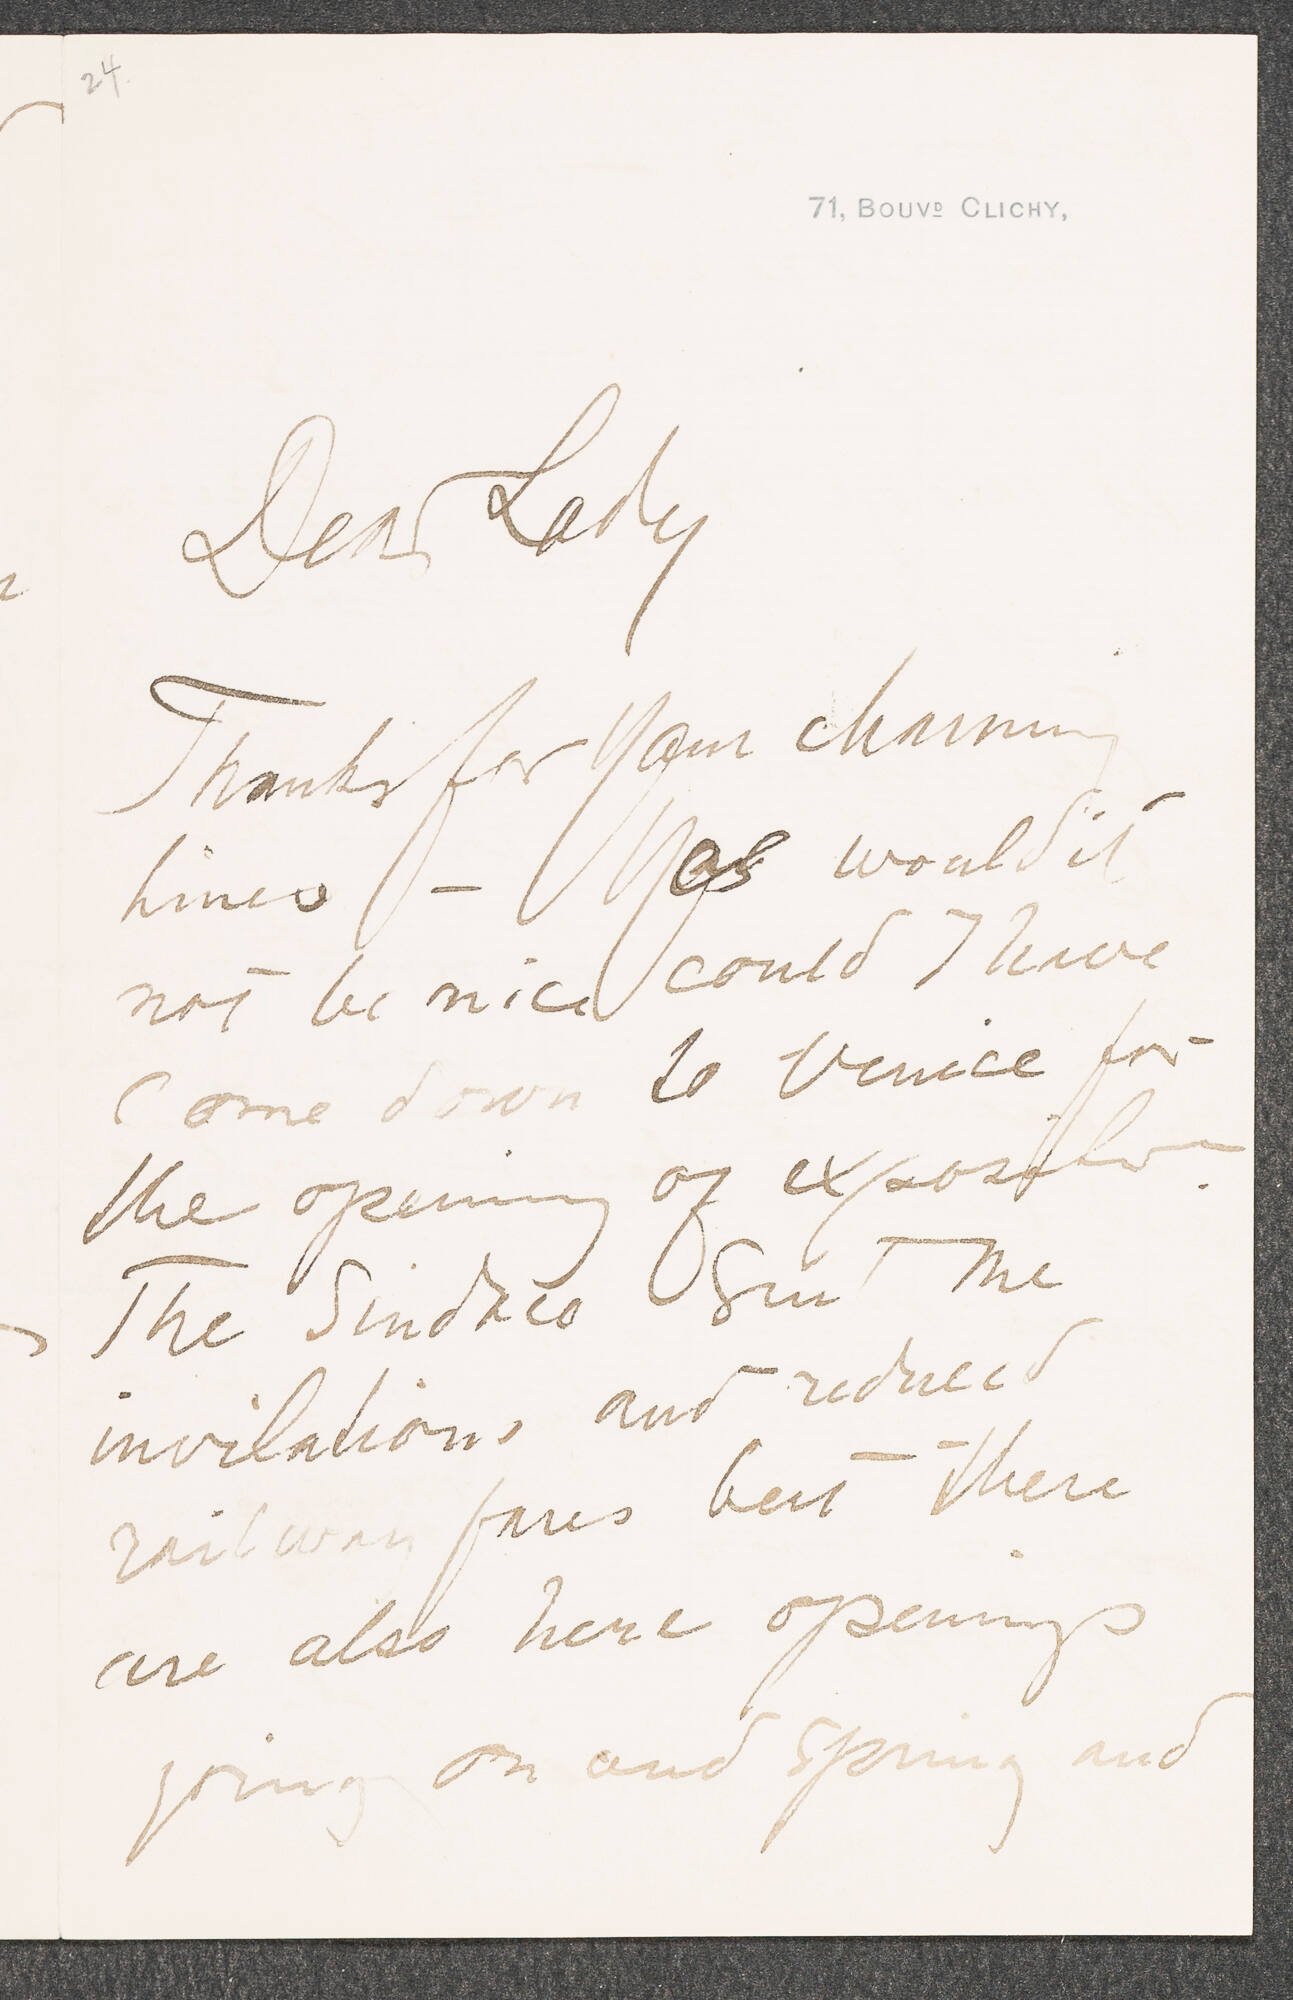 24.
71, BOUVD CLICHY,
Dear Lady
Thanks for your charming
lines – Yes would it
not be nice could I have
come down to Venice for
the opening of exposition.
The Sindaco sent me
invitations and reduced
railway fares but there
are also here openings
going on and spring and